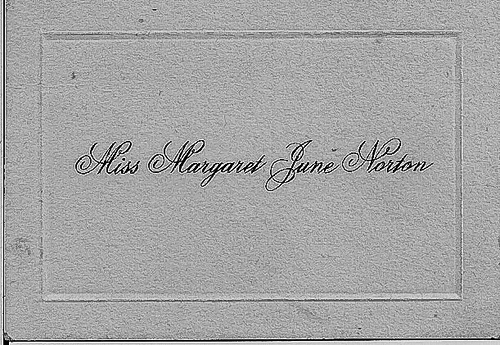 Miss Margaret June Norton